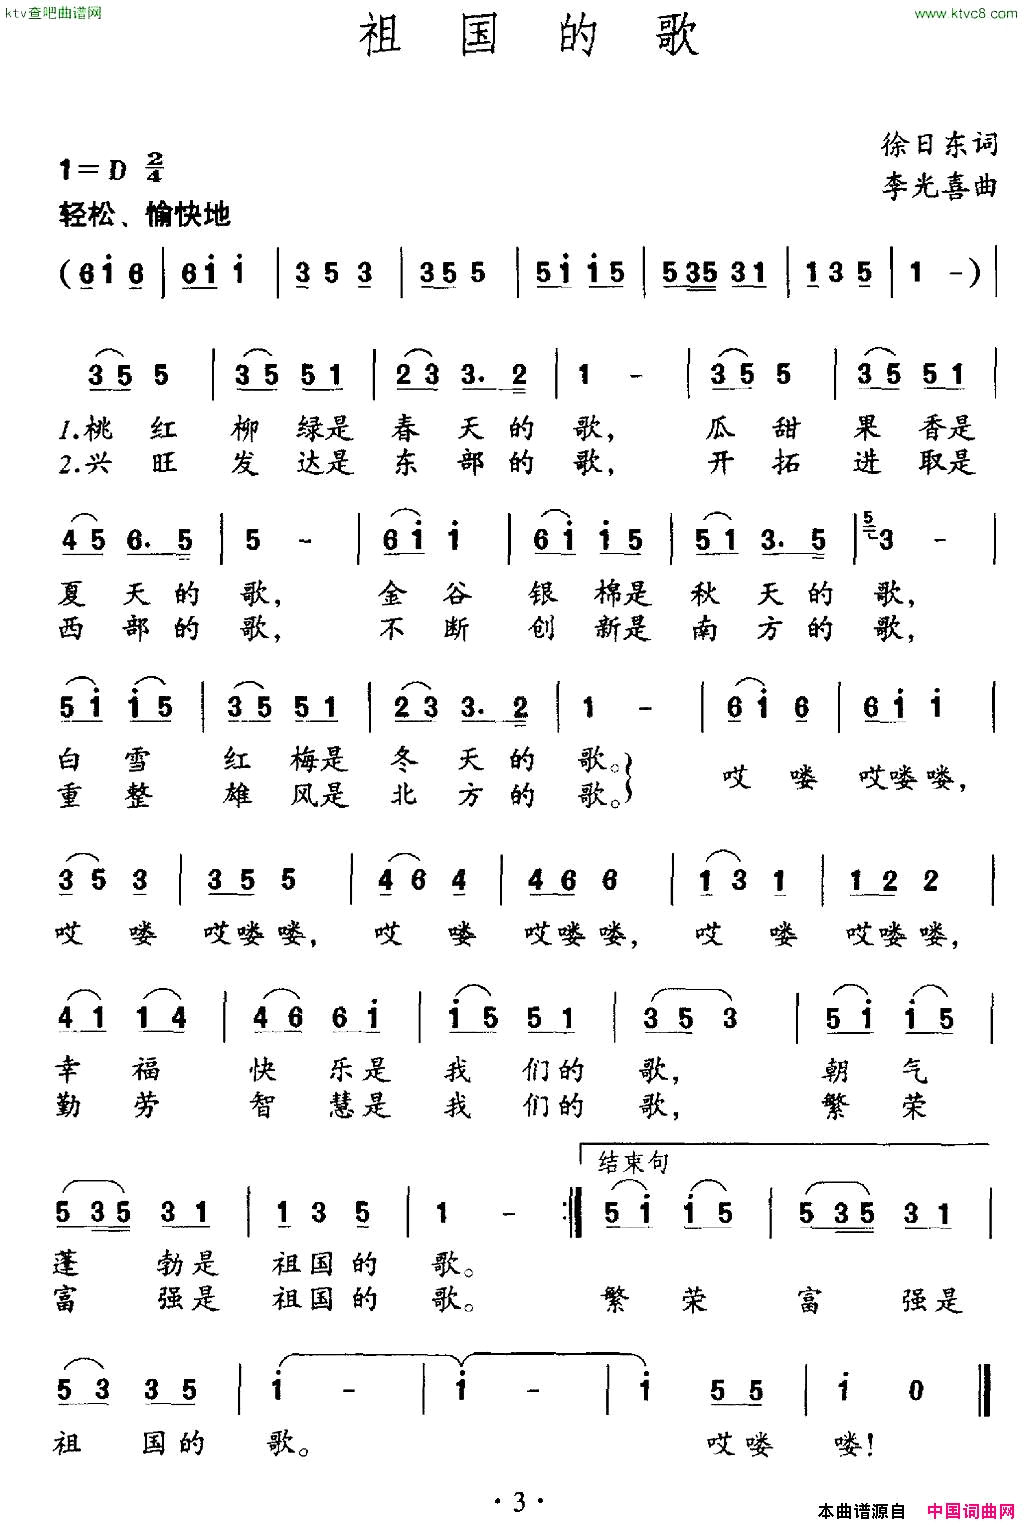 ktv查吧曲谱网
www.ktvc8.com
祖国的歌
徐日东词
1=D 2/4
李光喜曲
轻松、愉快地
(6i6 | 6i i | 353 | 355 | 5i i5 | 535 31 | 135 | 1 -) |
35 5 | 35 51 | 23 3. 2 | 1 - | 35 5 | 35 51 |
1.桃红 柳绿是 春天的歌, 瓜甜 果香是
2.兴旺 发达是 东部的歌, 开拓 进取是
45 6. 5 | 5 - | 6i i | 6i i5 | 51 3. 5 | 5 3 - |
夏天的歌, 金谷 银棉是 秋天的歌,
西部的歌, 不断 创新是 南方的歌,
5i i5 | 35 51 | 23 3. 2 | 1 - | 6i 6 | 6i i |
白雪 红梅是 冬天的歌。 哎喽 哎喽喽,
重整 雄风是 北方的歌。
35 3 | 35 5 | 46 4 | 46 6 | 13 1 | 12 2 |
哎喽 哎喽喽, 哎喽 哎喽喽, 哎喽 哎喽喽,
41 14 | 46 6i | i5 51 | 35 3 | 5i i5 |
幸福 快乐是 我们的 歌, 朝气
勤劳 智慧是 我们的 歌, 繁荣
结束句
535 31 | 135 | 1 - :| 5i i5 | 535 31 |
蓬勃是 祖国的 歌。
富强是 祖国的 歌。 繁荣 富强是
53 35 | i - | i - | i 55 | i 0 ‖
祖国的 歌。 哎喽 喽!
·3·
本曲谱源自 中国词曲网